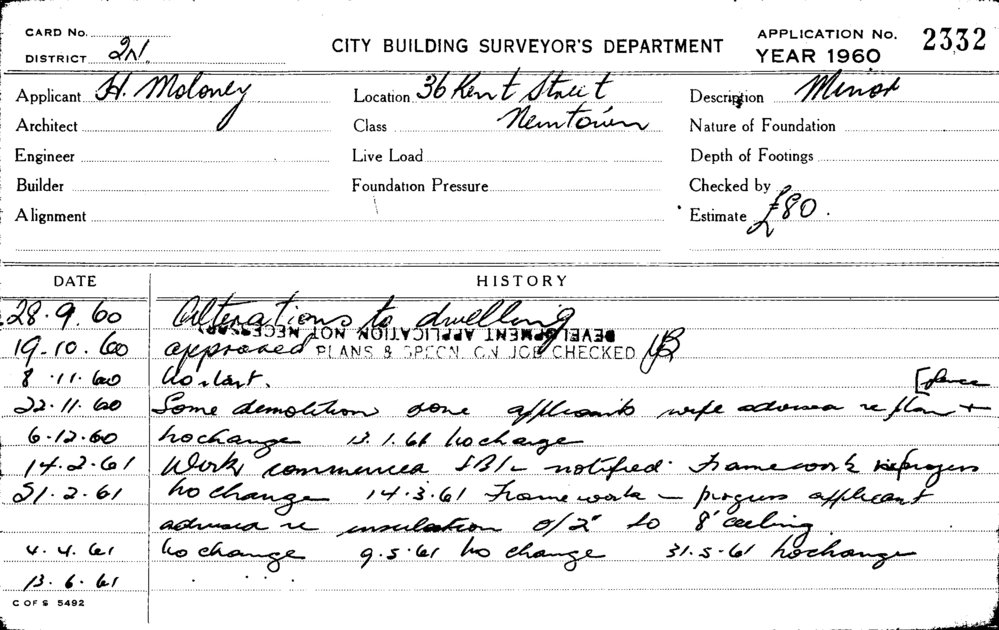 CARD No.
DISTRICT 2N.
CITY BUILDING SURVEYOR'S DEPARTMENT
APPLICATION No. 2332
YEAR 1960
Applicant H. Moloney Location 36 Kent Street Description Minor
Architect Class Newtown Nature of Foundation
Engineer Live Load Depth of Footings
Builder Foundation Pressure Checked by
Alignment Estimate £80.
DATE HISTORY
28.9.60 Alterations to dwelling
DEVELOPMENT APPLICATION NOT NECESSARY
19.10.60 approved PLANS & SPECN. ON JOB CHECKED
8.11.60 No start.
22.11.60 Some demolition done applicants wife advised re plan + [fence
6.12.60 No change 13.1.61 No change
14.2.61 Work commenced notified framework
21.2.61 No change 14.3.61 Framework in progress applicant
advised re insulation to 8' ceiling
4.4.61 No change 9.5.61 No change 31.5.61 No change
13.6.61
C OF S 5492